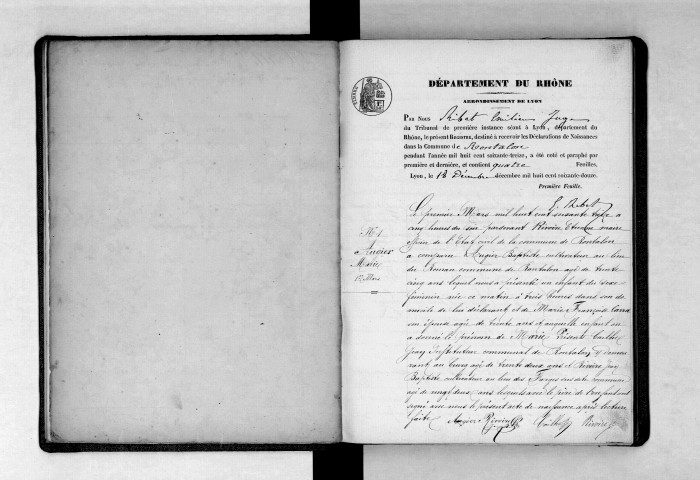 DÉPARTEMENT DU RHÔNE
ARRONDISSEMENT DE LYON
PAR NOUS Ribat Emilien Juge
du Tribunal de première instance séant à Lyon, département du
Rhône, le présent REGISTRE, destiné à recevoir les Déclarations de Naissances
dans la Commune de Rontalon
pendant l'année mil huit cent soixante-treize, a été coté et paraphé par
première et dernière, et contient quatre Feuilles.
Lyon, le 18 Décembre décembre mil huit cent soixante-douze.
Première Feuille.
E. Ribat
N° 1
Augier
Marie
1er Mars
Le premier Mars mil huit cent soixante treize à
cinq heures du soir pardevant Rivoire Etienne maire
officier de l'Etat civil de la commune de Rontalon
a comparu Augier Baptiste cultivateur au lieu
du commune de Rontalon agé de trente
cinq ans lequel nous a présenté un enfant du sexe
féminin née ce matin à trois heures dans son do
micile de lui déclarant et de Marie Françoise
son épouse agé de trente ans et auquelle enfant on
a donné le prénom de Marie Présents
Jean Instituteur communal de Rontalon y demeu
rant au bourg agé de trente deux ans et Rivoire Jean
Baptiste cultivateur au lieu des Farges susdite commune
agé de vingt deux ans lesquels avec le père de l'enfant ont
signé avec nous le présent acte de naissance après lecture
faite Augier Rivoire Rivoire